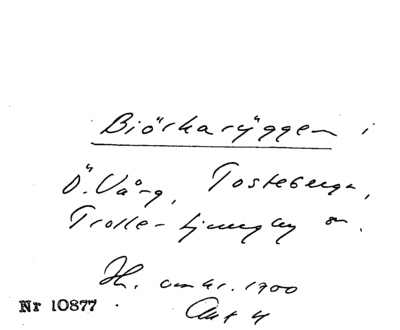 Björkaryggen i
Ö. Vång, Tosteberga,
Trolle-Ljungby sn.
omkr. 1900
Nr 10877